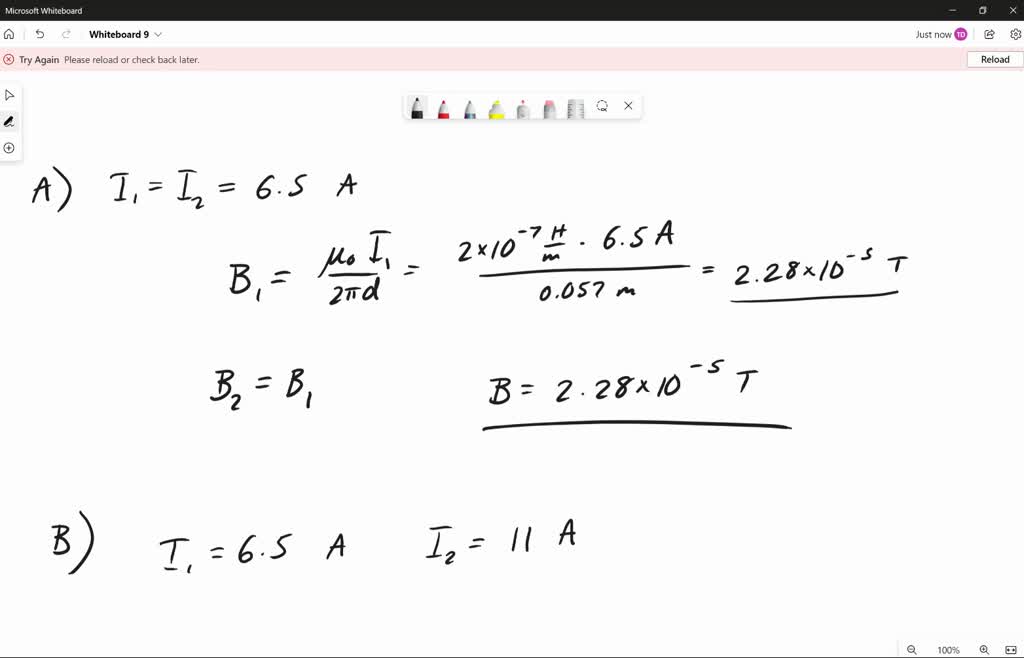 Microsoft Whiteboard
Whiteboard 9
Just now TD
Try Again Please reload or check back later.
Reload
A) I₁ = I₂ = 6.5 A
B₁ = μ₀ I₁ / 2πd = 2×10⁻⁷ H/m · 6.5 A / 0.057 m = 2.28×10⁻⁵ T
B₂ = B₁ B = 2.28×10⁻⁵ T
B) I₁ = 6.5 A I₂ = 11 A
100%